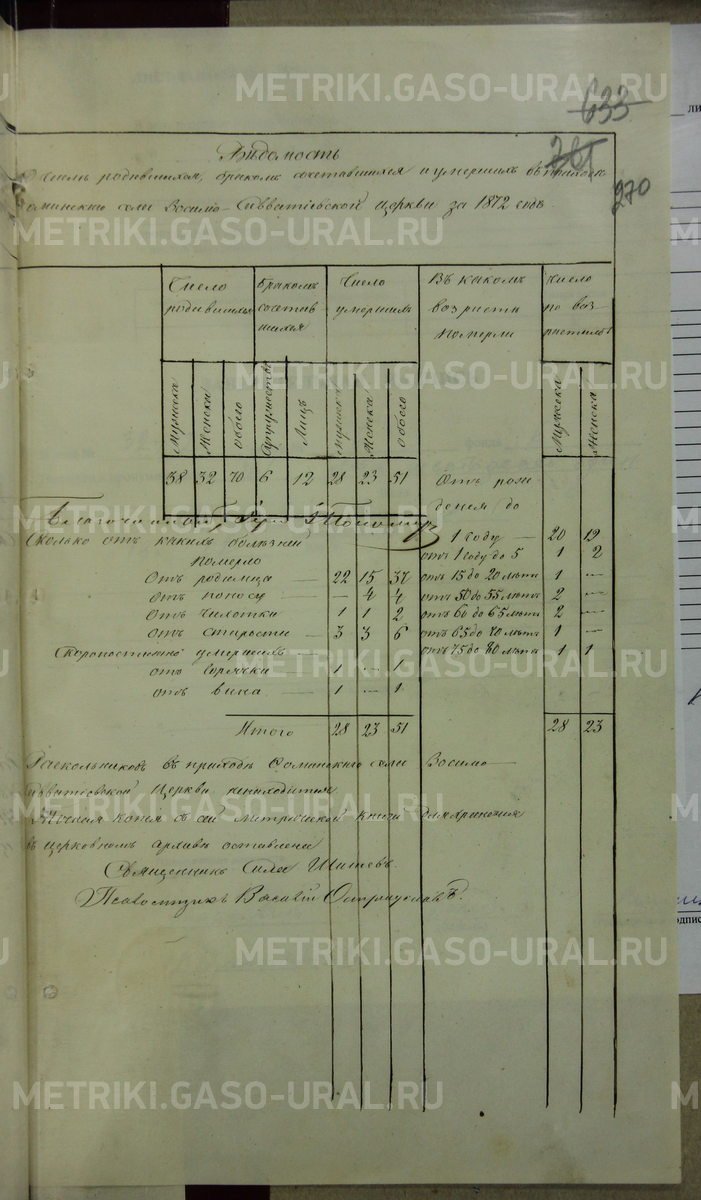 METRIKI.GASO-URAL.RU
633
270
Вѣдомость
О числѣ родившихся, бракомъ сочетавшихся и умершихъ въ приходѣ
Соминскаго села Зосимо-Савватіевской церкви за 1872 годъ.
Число родившихся
Бракомъ сочетавшихся
Число умершихъ
Въ какомъ возрастѣ померли
Число по возрастамъ
Мужеска Женска Обоего Супружествъ Лицъ Мужеска Женска Обоего Мужеска Женска
38 32 70 6 12 28 23 51
Отъ рождения до
1 году — 20 19
Сколько отъ какихъ болѣзней
померло
отъ 1 году до 5 1 2
Отъ родимца — 22 15 37 отъ 15 до 20 лѣтъ 1 —
отъ поносу — 4 4 отъ 50 до 55 лѣтъ 2 —
Отъ чихотки 1 1 2 отъ 60 до 65 лѣтъ 2 —
отъ старости — 3 3 6 отъ 65 до 70 лѣтъ 1 —
Скоропостижно умершихъ — отъ 75 до 80 лѣтъ 1 1
отъ горячки — 1 — 1
отъ вина 1 — 1
Итого 28 23 51 28 23
Раскольниковъ въ приходѣ Соминскаго села Зосимо-
Савватіевской церкви
копія съ сей метрической книги для храненія
въ церковномъ архивѣ оставлена
Священникъ Сила
Псаломщикъ Василій
METRIKI.GASO-URAL.RU